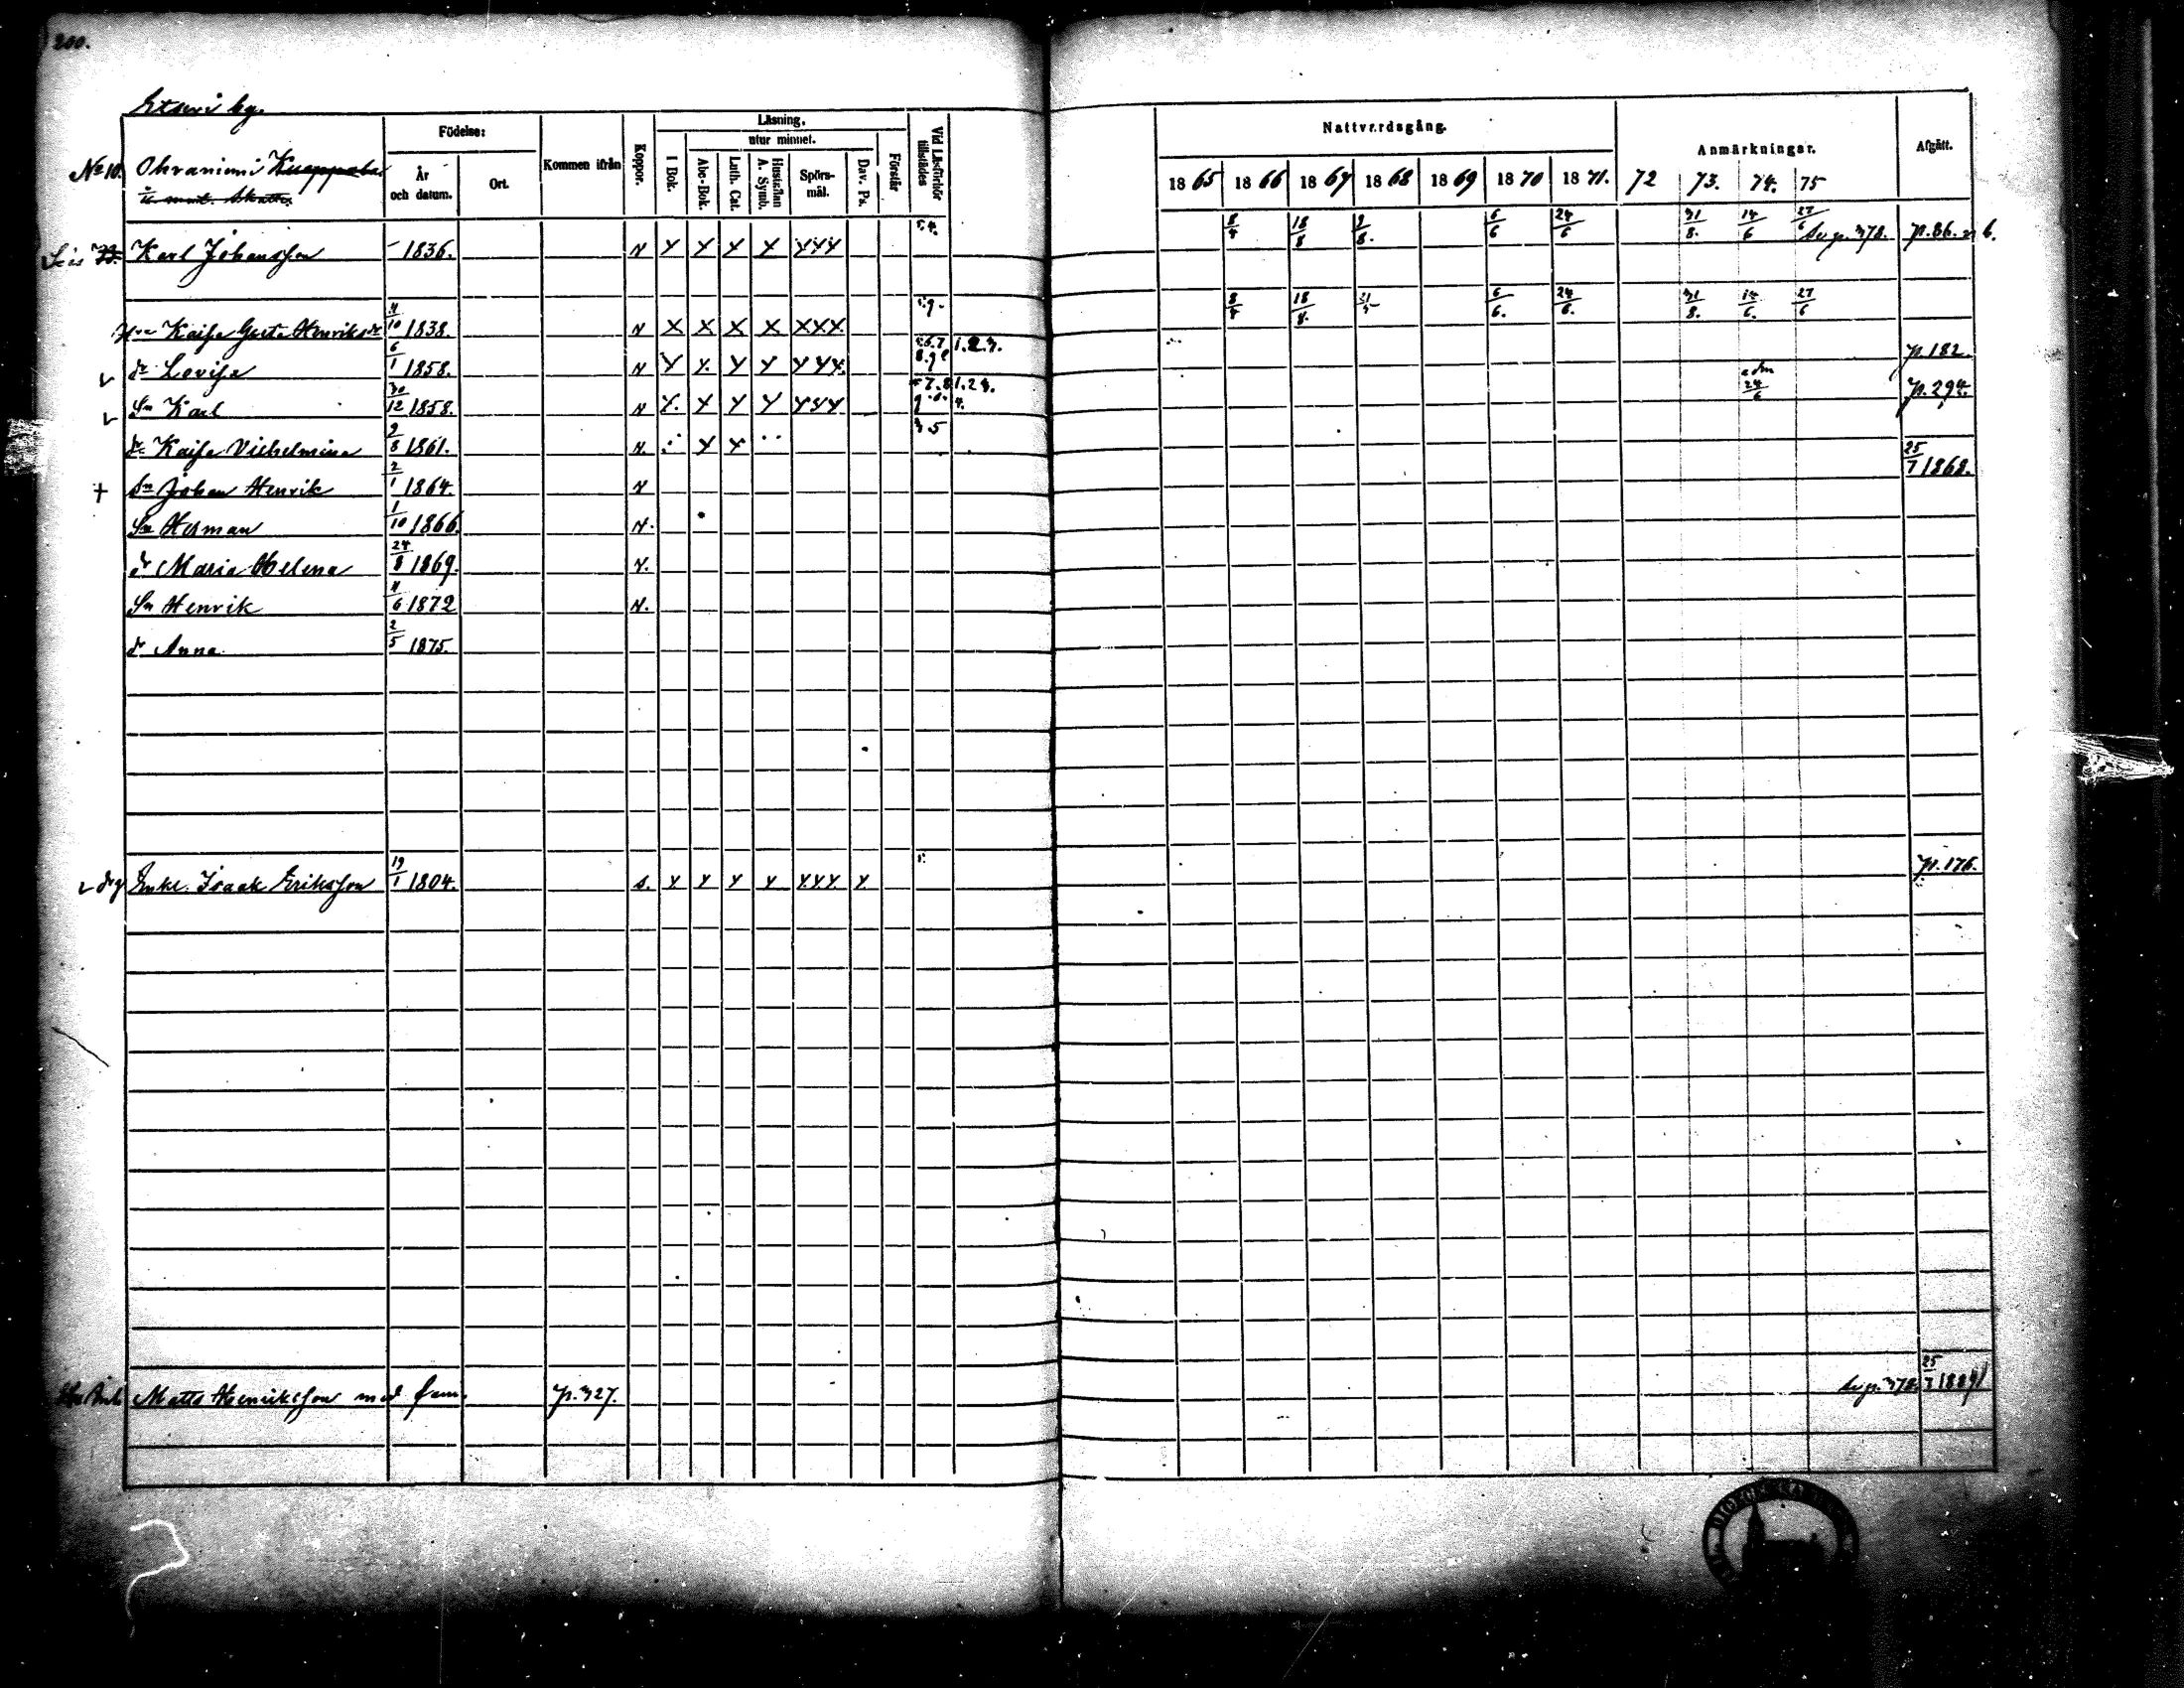 200.
by.
Födelse: Läsning. Nattvardsgång. Anmärkningar. Afgått.
utur minnet.
No 10. Ohraniemi
År och datum. Ort. Kommen ifrån Koppor. I Bok. Abc-Bok. Luth. Cat. Hustaflan A. Symb. Spörs-mål. Dav. Ps. Förstår Vid Läsförhör tillstädes 1865 1866 1867 1868 1869 1870 1871. 72 73. 74. 75
Karl Johansson 1836. N X X X X XXX 8/4 18/8 9/8. 6/6 24/6 31/8. 14/6 27/6 Se p. 378. p. 86.
Kaisa Greta Henriksdr 4/10 1838. N X X X X XXX 8/4 18/8. 6/6. 24/6. 31/8. 14/6. 27/6
dr Lovisa 6/1 1858. N X X X X XXX 1.2.3. p. 182.
Sn Karl 30/12 1858. N X. X X X XXX 1.2.3. 4. adm 24/6 p. 294.
dr Kaisa Vilhelmina 9/8 1861. N. X X 3.5
† Sn Johan Henrik 2/1 1864. N 25/7 1868.
Sn Herman 1/10 1866. N.
dr Maria Helena 24/8 1869. N.
Sn Henrik 4/6 1872 N.
dr Anna 2/5 1875.
Enkl. Isaak Eriksson 19/1 1804. s. X X X X XXX X p. 176.
Matts Henriksson med fam. p. 327. Se p. 378. 25/7